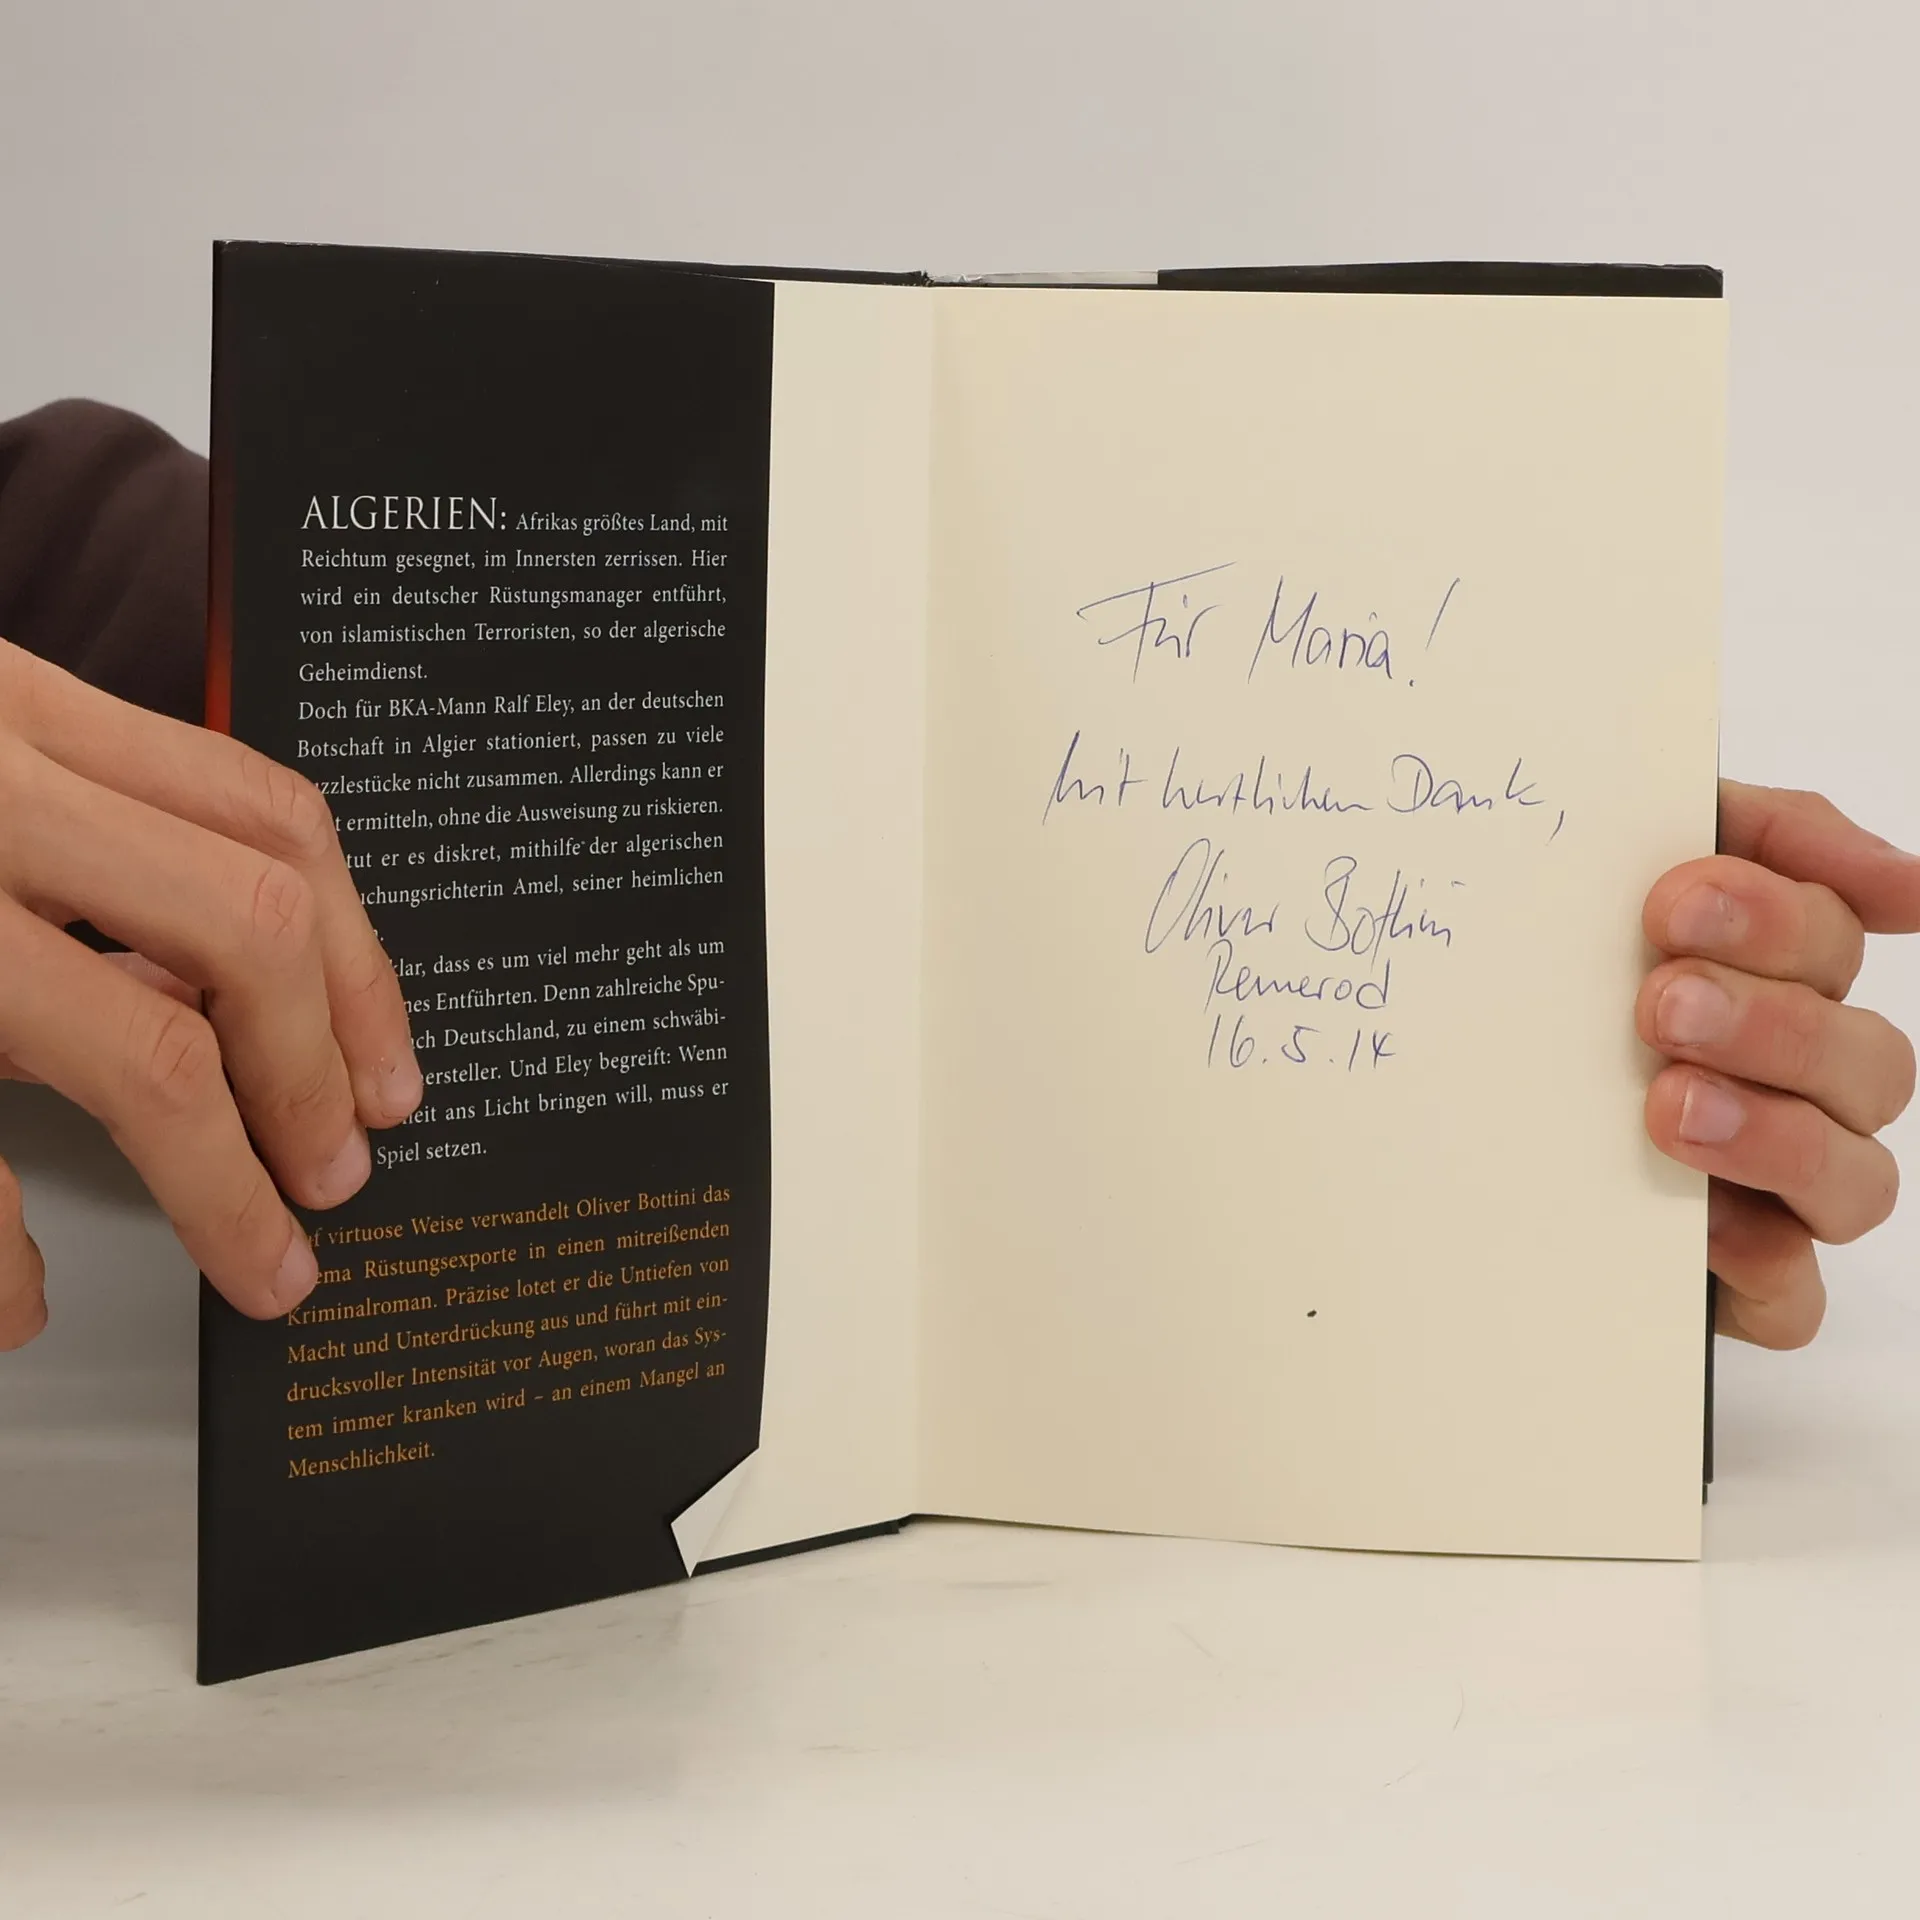 ALGERIEN: Afrikas größtes Land, mit
Reichtum gesegnet, im Innersten zerrissen. Hier
wird ein deutscher Rüstungsmanager entführt,
von islamistischen Terroristen, so der algerische
Geheimdienst.
Doch für BKA-Mann Ralf Eley, an der deutschen
Botschaft in Algier stationiert, passen zu viele
zzlestücke nicht zusammen. Allerdings kann er
t ermitteln, ohne die Ausweisung zu riskieren.
tut er es diskret, mithilfe der algerischen
uchungsrichterin Amel, seiner heimlichen
.
klar, dass es um viel mehr geht als um
nes Entführten. Denn zahlreiche Spu-
ch Deutschland, zu einem schwäbi-
ersteller. Und Eley begreift: Wenn
eit ans Licht bringen will, muss er
Spiel setzen.
f virtuose Weise verwandelt Oliver Bottini das
ema Rüstungsexporte in einen mitreißenden
Kriminalroman. Präzise lotet er die Untiefen von
Macht und Unterdrückung aus und führt mit ein-
drucksvoller Intensität vor Augen, woran das Sys-
tem immer kranken wird – an einem Mangel an
Menschlichkeit.
Für Maria!
Mit herzlichem Dank,
Oliver Bottini
Remerod
16.5.14